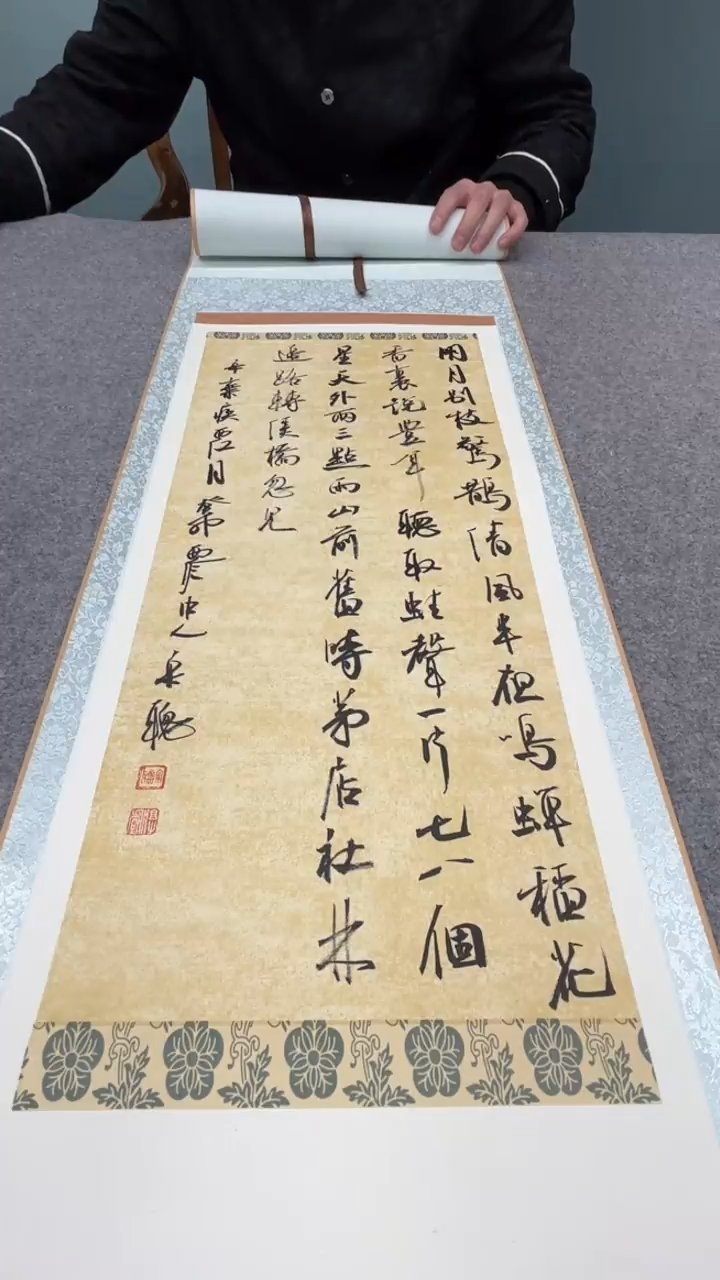 明月別枝驚鵲清風半夜鳴蟬稻花
香裏說豐年聽取蛙聲一片七八個
星天外兩三點雨山前舊時茅店社林
邊路轉溪橋忽見
辛棄疾西江月